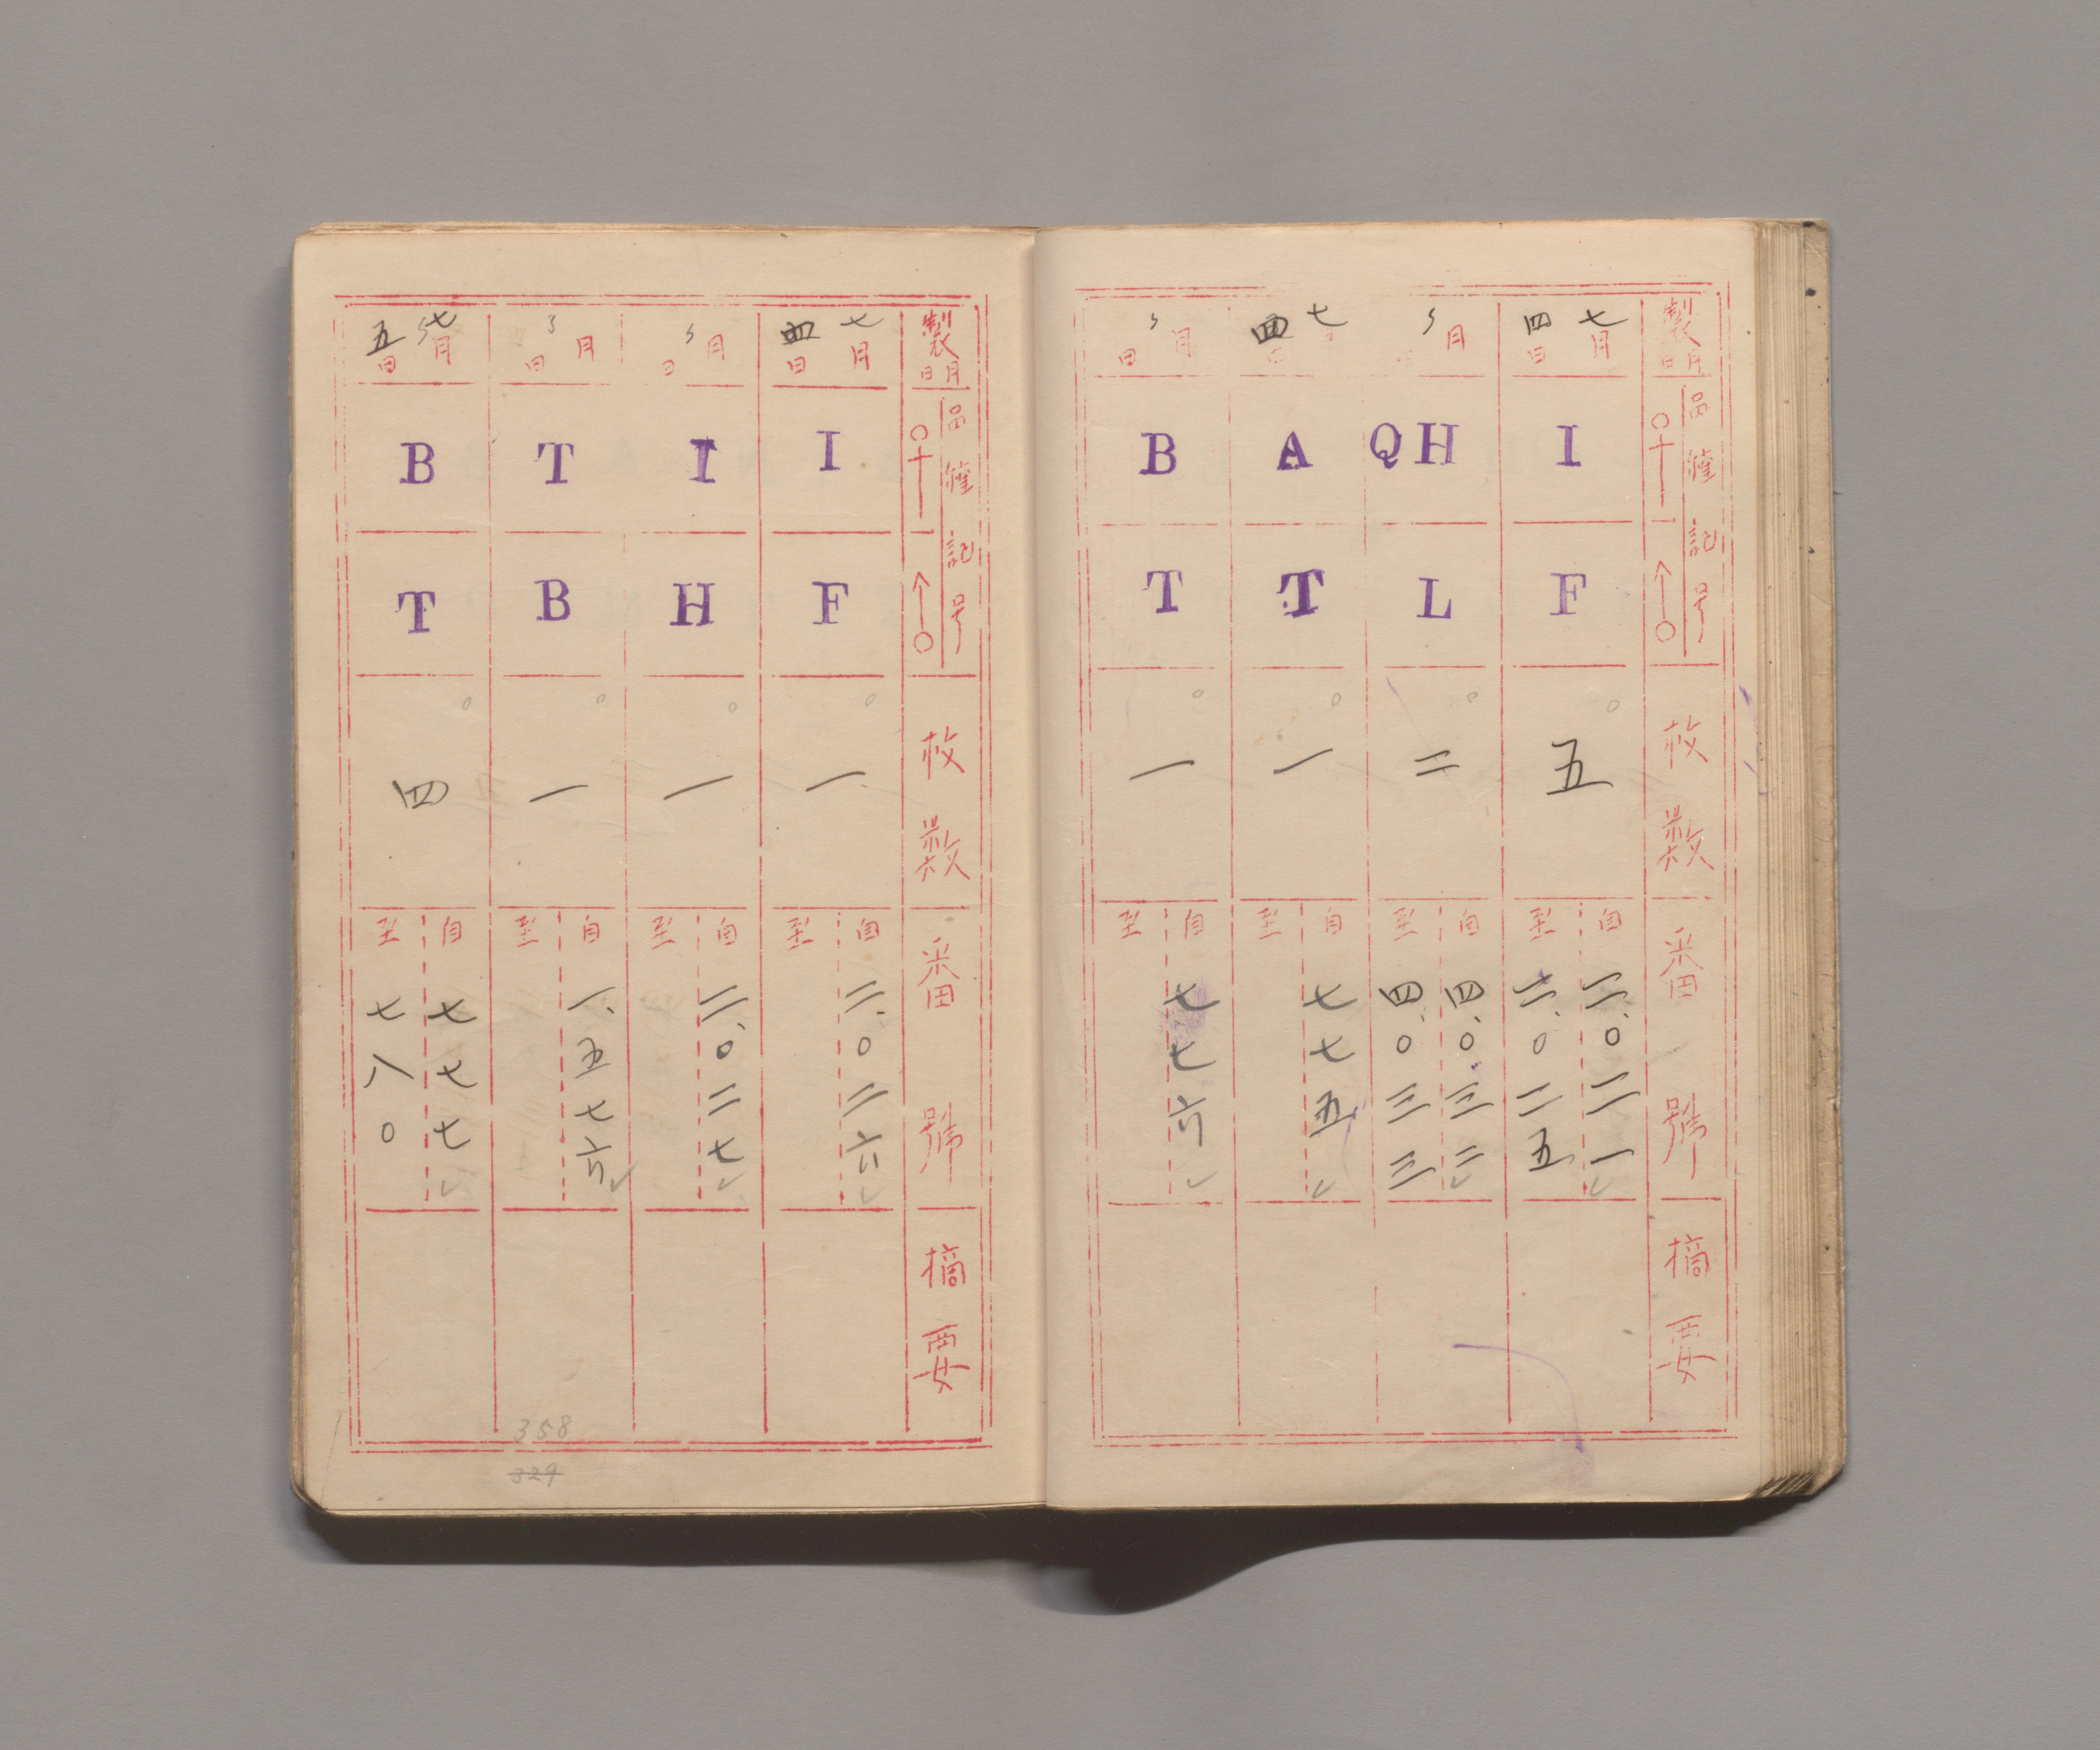 製月日
罐記号
枚数
番號
摘要
七月四日
I
F
五
自二、〇二一
至二、〇二五
〃月日
QH
L
二
自四、〇三二
至四、〇三三
七月四日
A
T
一
自七七五
至
〃月日
B
T
一
自七七六
至
製月日
罐記号
枚数
番號
摘要
七月四日
I
F
一
自二、〇二六
至
〃月日
I
H
一
自二、〇二七
至
〃月日
T
B
一
自一、五七六
至
七月五日
B
T
四
自七七七
至七八〇
358
329